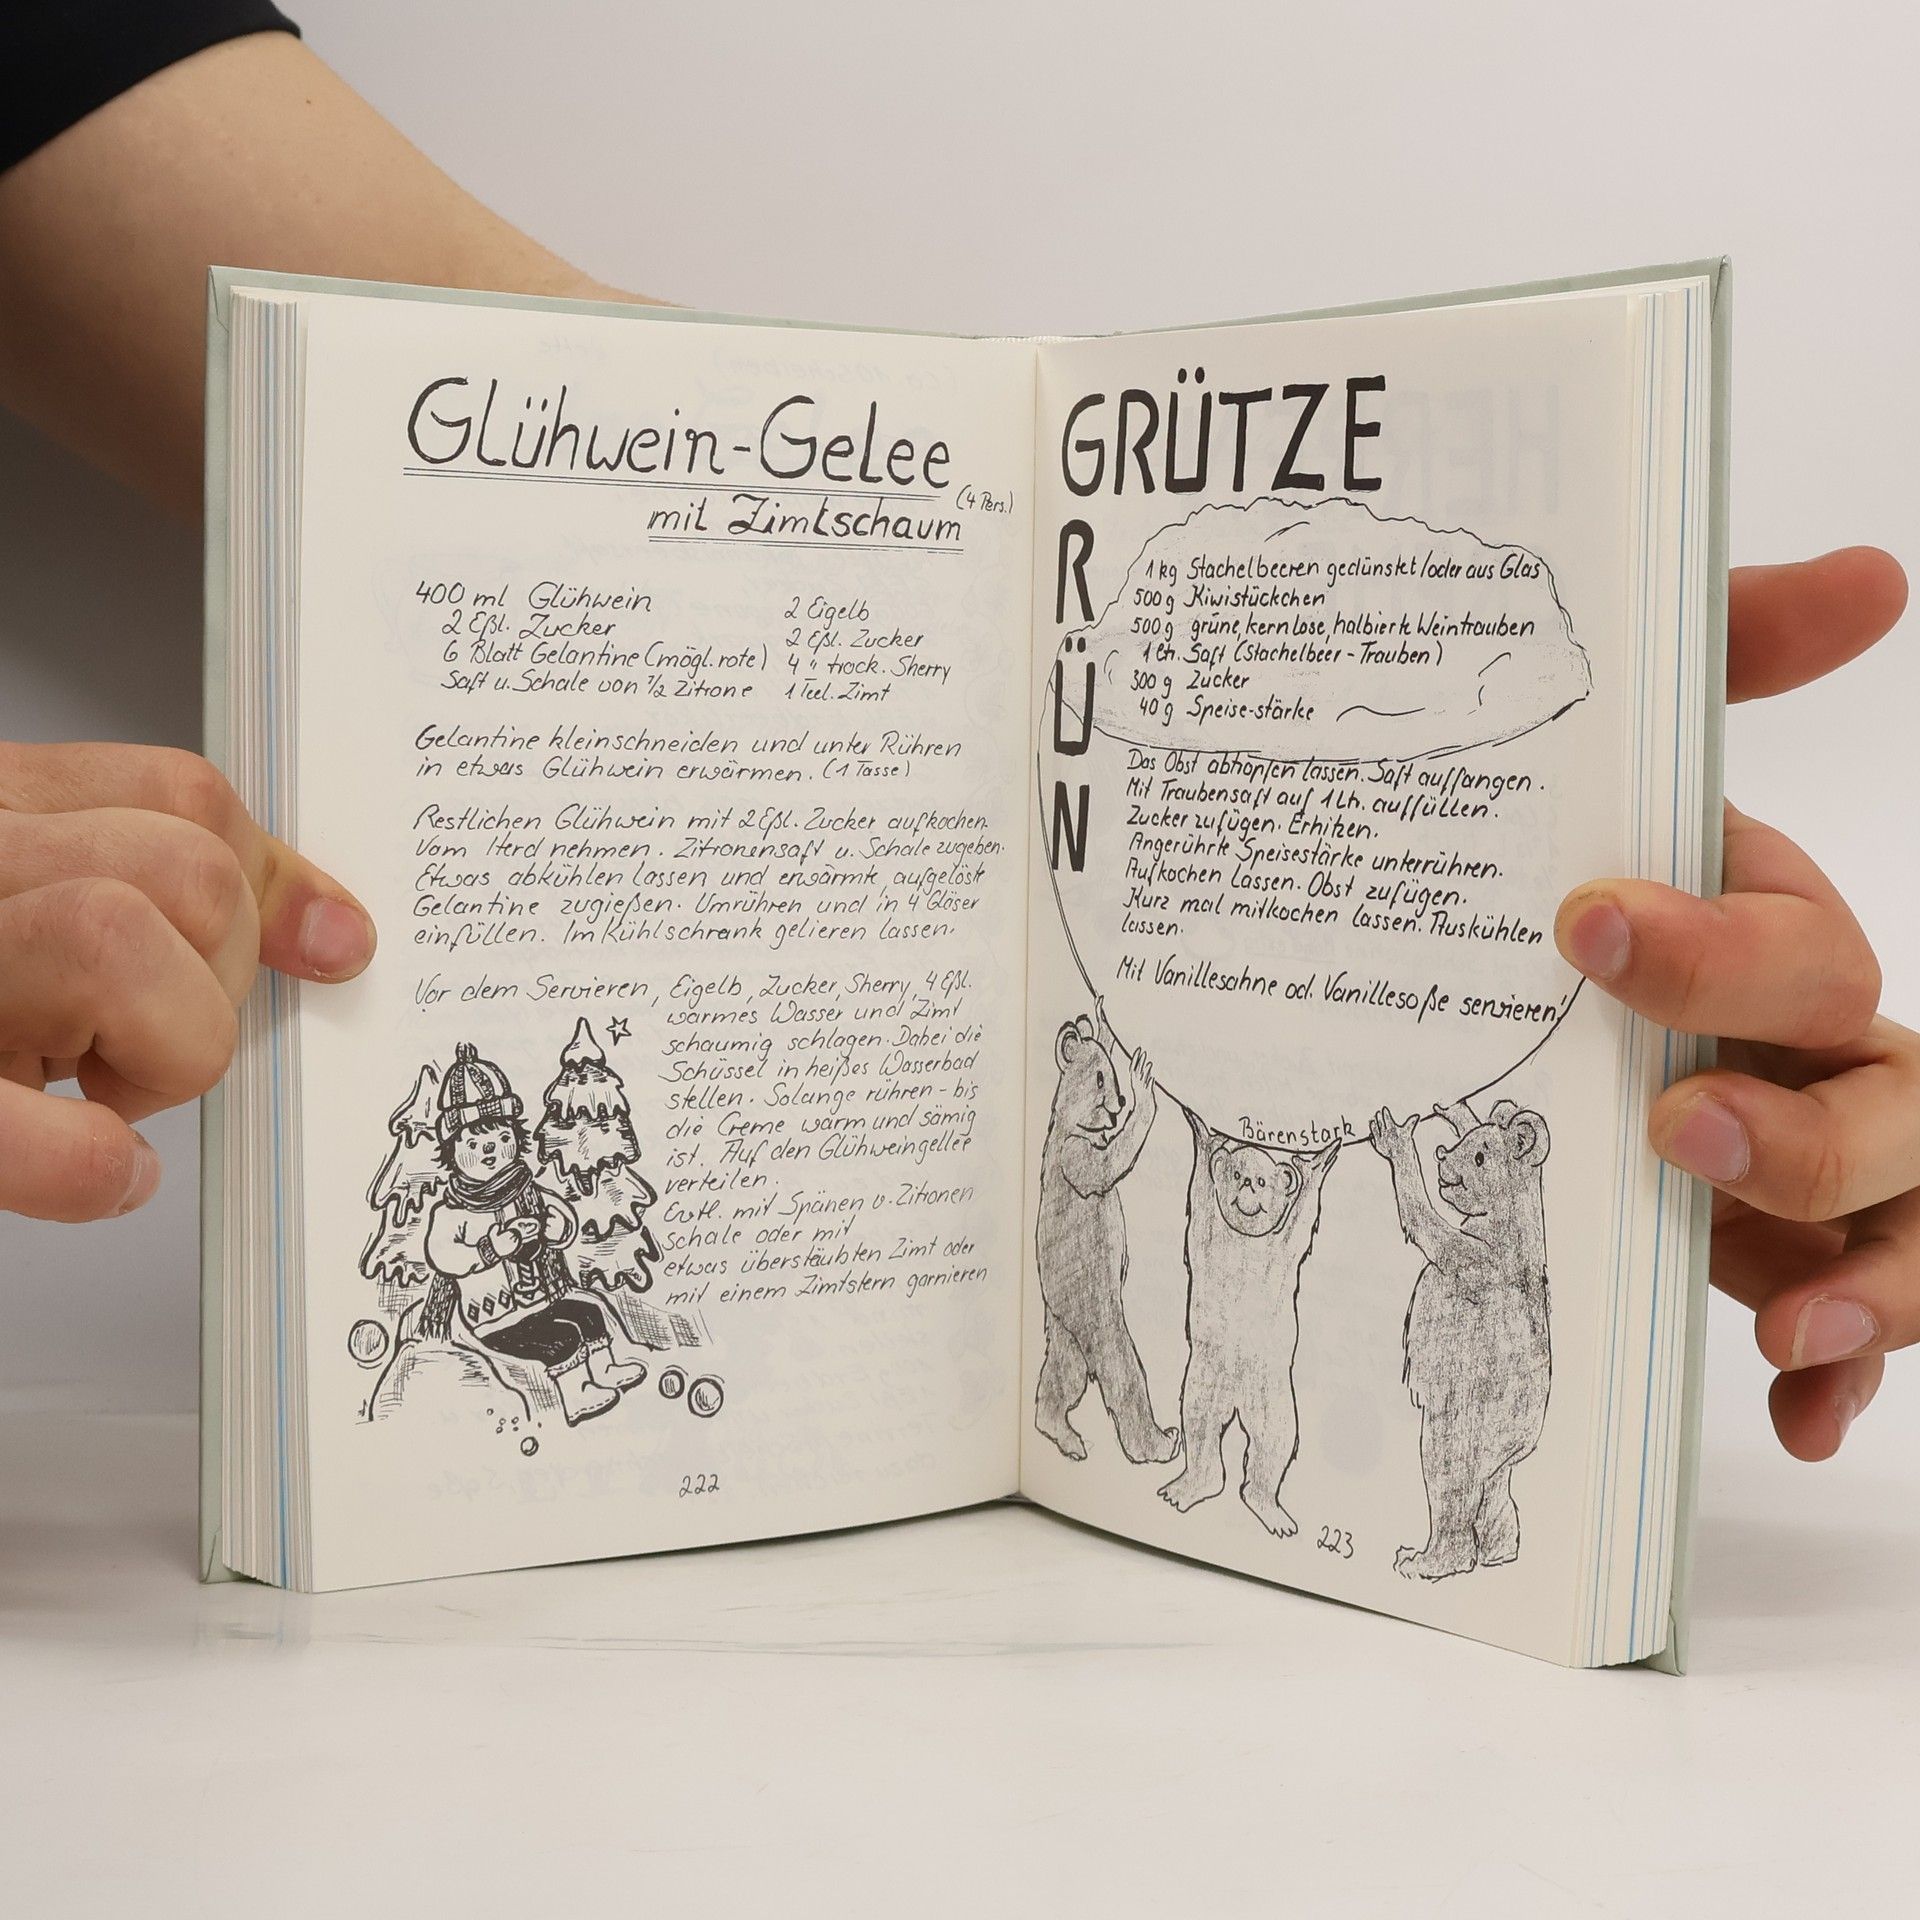 Glühwein-Gelee
(4 Pers.)
mit Zimtschaum
400 ml Glühwein
2 Eßl. Zucker
6 Blatt Gelantine (mögl. rote)
Saft u. Schale von 1/2 Zitrone
2 Eigelb
2 Eßl. Zucker
4 " trock. Sherry
1 Teel. Zimt
Gelantine kleinschneiden und unter Rühren
in etwas Glühwein erwärmen. (1 Tasse)
Restlichen Glühwein mit 2 Eßl. Zucker aufkochen.
Vom Herd nehmen. Zitronensaft u. Schale zugeben.
Etwas abkühlen lassen und erwärmte, aufgelöste
Gelantine zugießen. Umrühren und in 4 Gläser
einfüllen. Im Kühlschrank gelieren lassen.
Vor dem Servieren, Eigelb, Zucker, Sherry, 4 Eßl.
warmes Wasser und Zimt
schaumig schlagen. Dabei die
Schüssel in heißes Wasserbad
stellen. Solange rühren - bis
die Creme warm und sämig
ist. Auf den Glühweingellee
verteilen.
Evtl. mit Spänen v. Zitronen
schale oder mit
etwas überstäubten Zimt oder
mit einem Zimtstern garnieren
222
GRÜTZE
RÜN
1 kg Stachelbeeren gedünstet/oder aus Glas
500 g Kiwistückchen
500 g grüne, kernlose, halbierte Weintrauben
1 Ltr. Saft (Stachelbeer-Trauben)
300 g Zucker
40 g Speise-stärke
Das Obst abtropfen lassen. Saft auffangen.
Mit Traubensaft auf 1 Ltr. auffüllen.
Zucker zufügen. Erhitzen.
Angerührte Speisestärke unterrühren.
Aufkochen lassen. Obst zufügen.
Kurz mal mitkochen lassen. Auskühlen
lassen.
Mit Vanillesahne od. Vanillesoße servieren!
Bärenstark
223